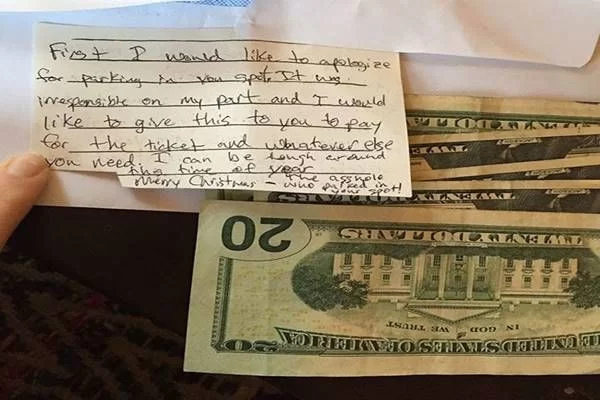 First I would like to apologize
for parking in you spot. It was
irresponsible on my part and I would
like to give this to you to pay
for the ticket and whatever else
you need. I can be tough around
this time of year
Merry Christmas - The asshole
who parked in
your spot!
TWENTY DOLLARS
TWENTY DOLLARS
20
TWENTY DOLLARS
IN GOD WE TRUST
20
UNITED STATES OF AMERICA